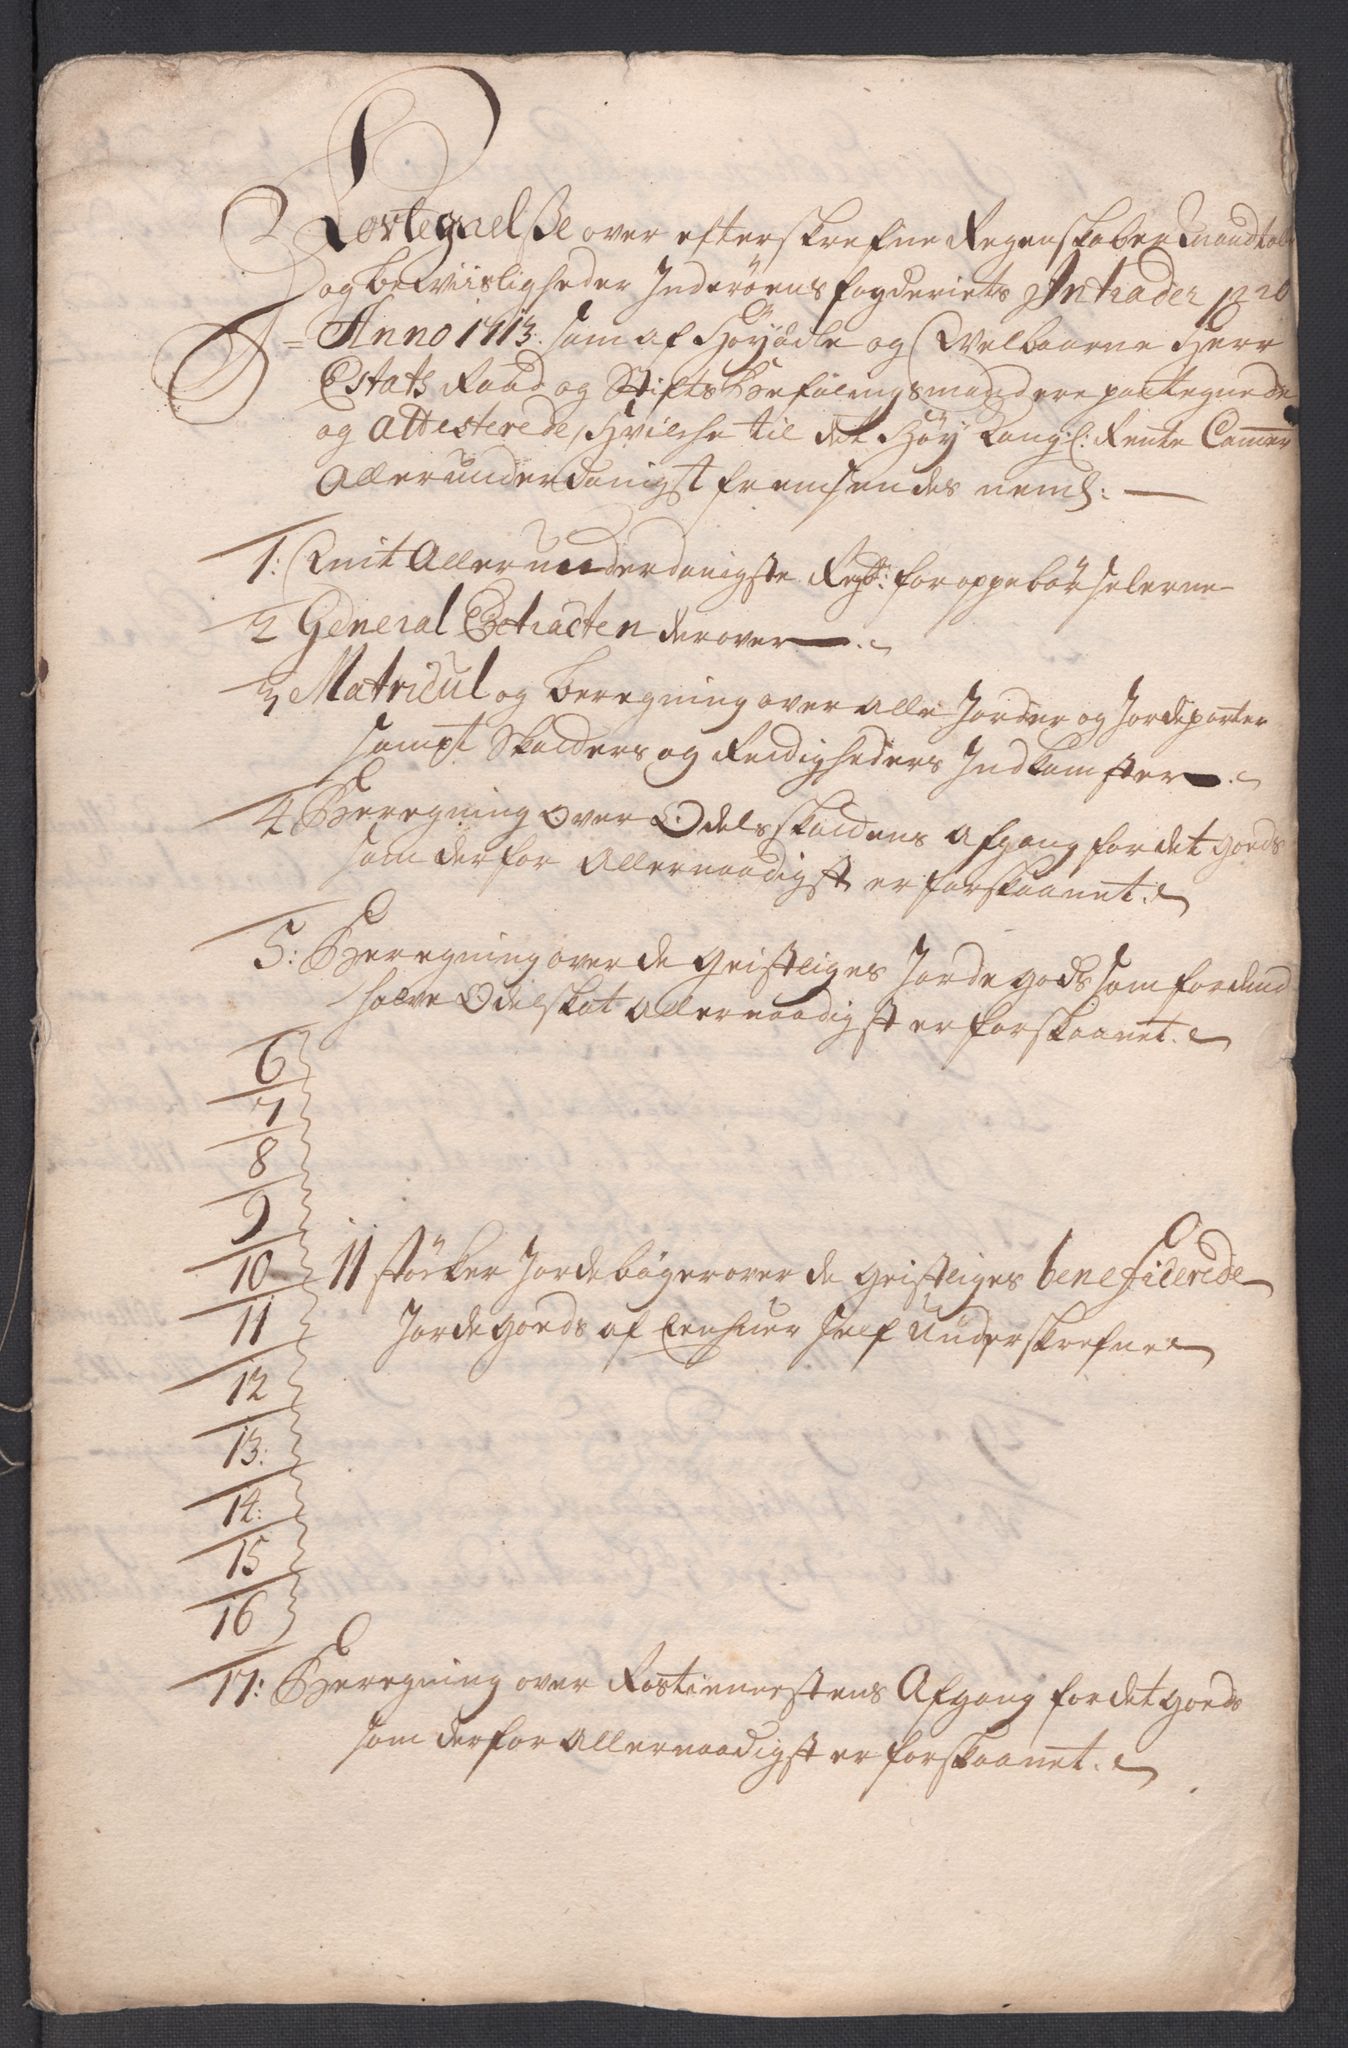 Fortegnelsse over efterskrefne Regenskaber Mandtaler
og beviisligheder Inderöens fogderiets Intrader pro
Anno 1713. som af Höyädle og Welbaarne Herr
Estats Raad og Stifts Befalingsmand ere paategnede
og attesterede, Hvilche til det Höy Kongl: Rente Cammer
Allerunderdanigst fremsendes neml:
1: Mit Allerunderdanigste Regsk: for oppebörselerne
2 General Extracten derover
3 Matricul og beregning over alle Jorder og Jordeparter
sampt Skatters og Retigheders Indkomster
4 Beregning over Odelsskattens Afgang for det goeds
som derfor Allernaadigst er forskaanet.
5: Beregning over de Geistliges Jordegods som for dend
halve Odelskat Allernaadigst er forskaanet.
6
7
8
9
10 11 støcker Jordebøger over de Geistliges beneficerede
11 Jordegoeds af Eenhver self Underskrefne
12
13:
14:
15
16
17: Beregning over Rostienestens Afgang for det goeds
som derfor Allernaadigst er forskaanet.